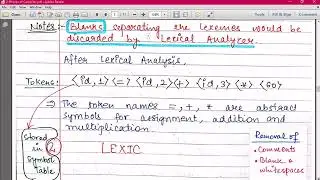 Notes:- Blanks separating the lexemes would be
discarded by Lexical Analyzer.
After Lexical Analysis,
Tokens: <id,1> <=> <id,2> <+> <id,3> <*> <60>
⇒ The token names =, +, * are abstract
symbols for assignment, addition and
multiplication.
Stored
in
Symbol
Table
LEXIC
Removal of
• Comments
• Blank &
whitespaces